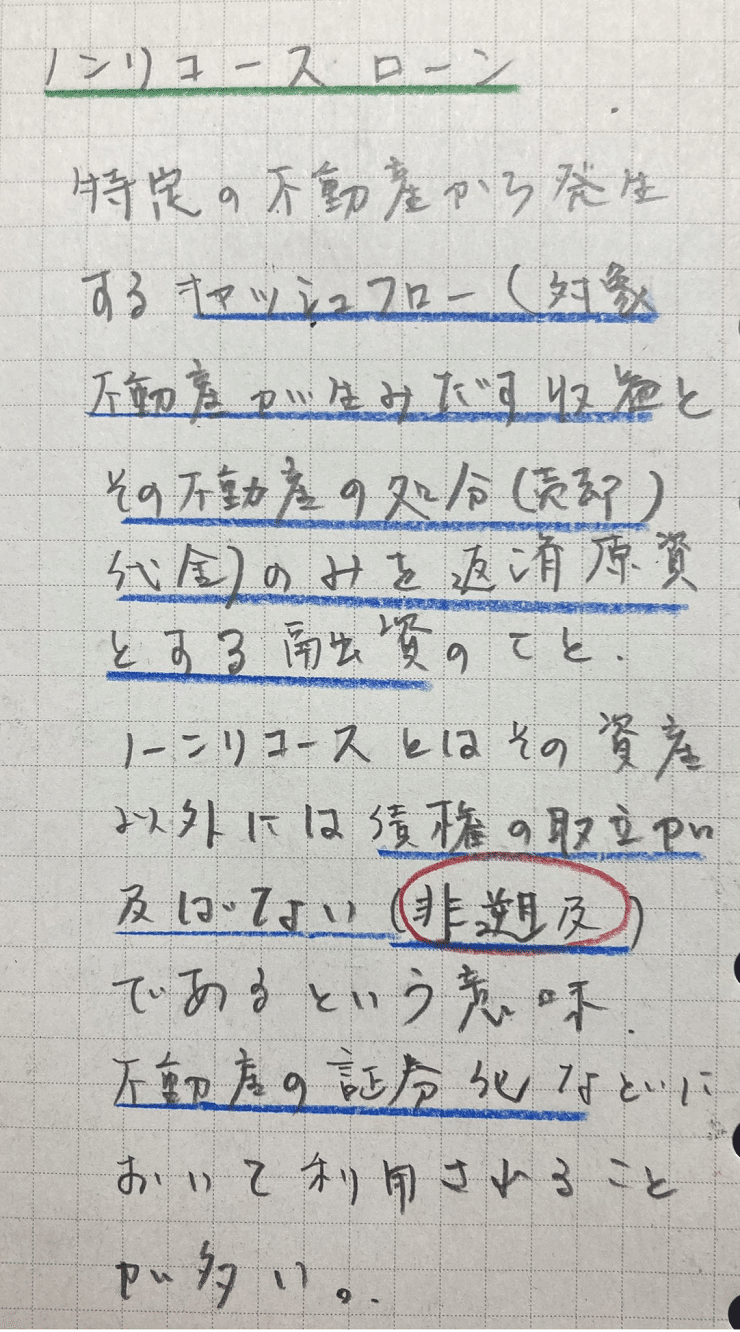 ノンリコース ローン
特定の不動産から発生
するキャッシュフロー(対象
不動産が生みだす収益と
その不動産の処分(売却)
代金)のみを返済原資
とする 出資のこと.
ノーンリコースとはその資産
以外には債権の取立が
及ばない(非遡及)
であるという意味.
不動産の証券化などに
おいて利用されること
が多い。.